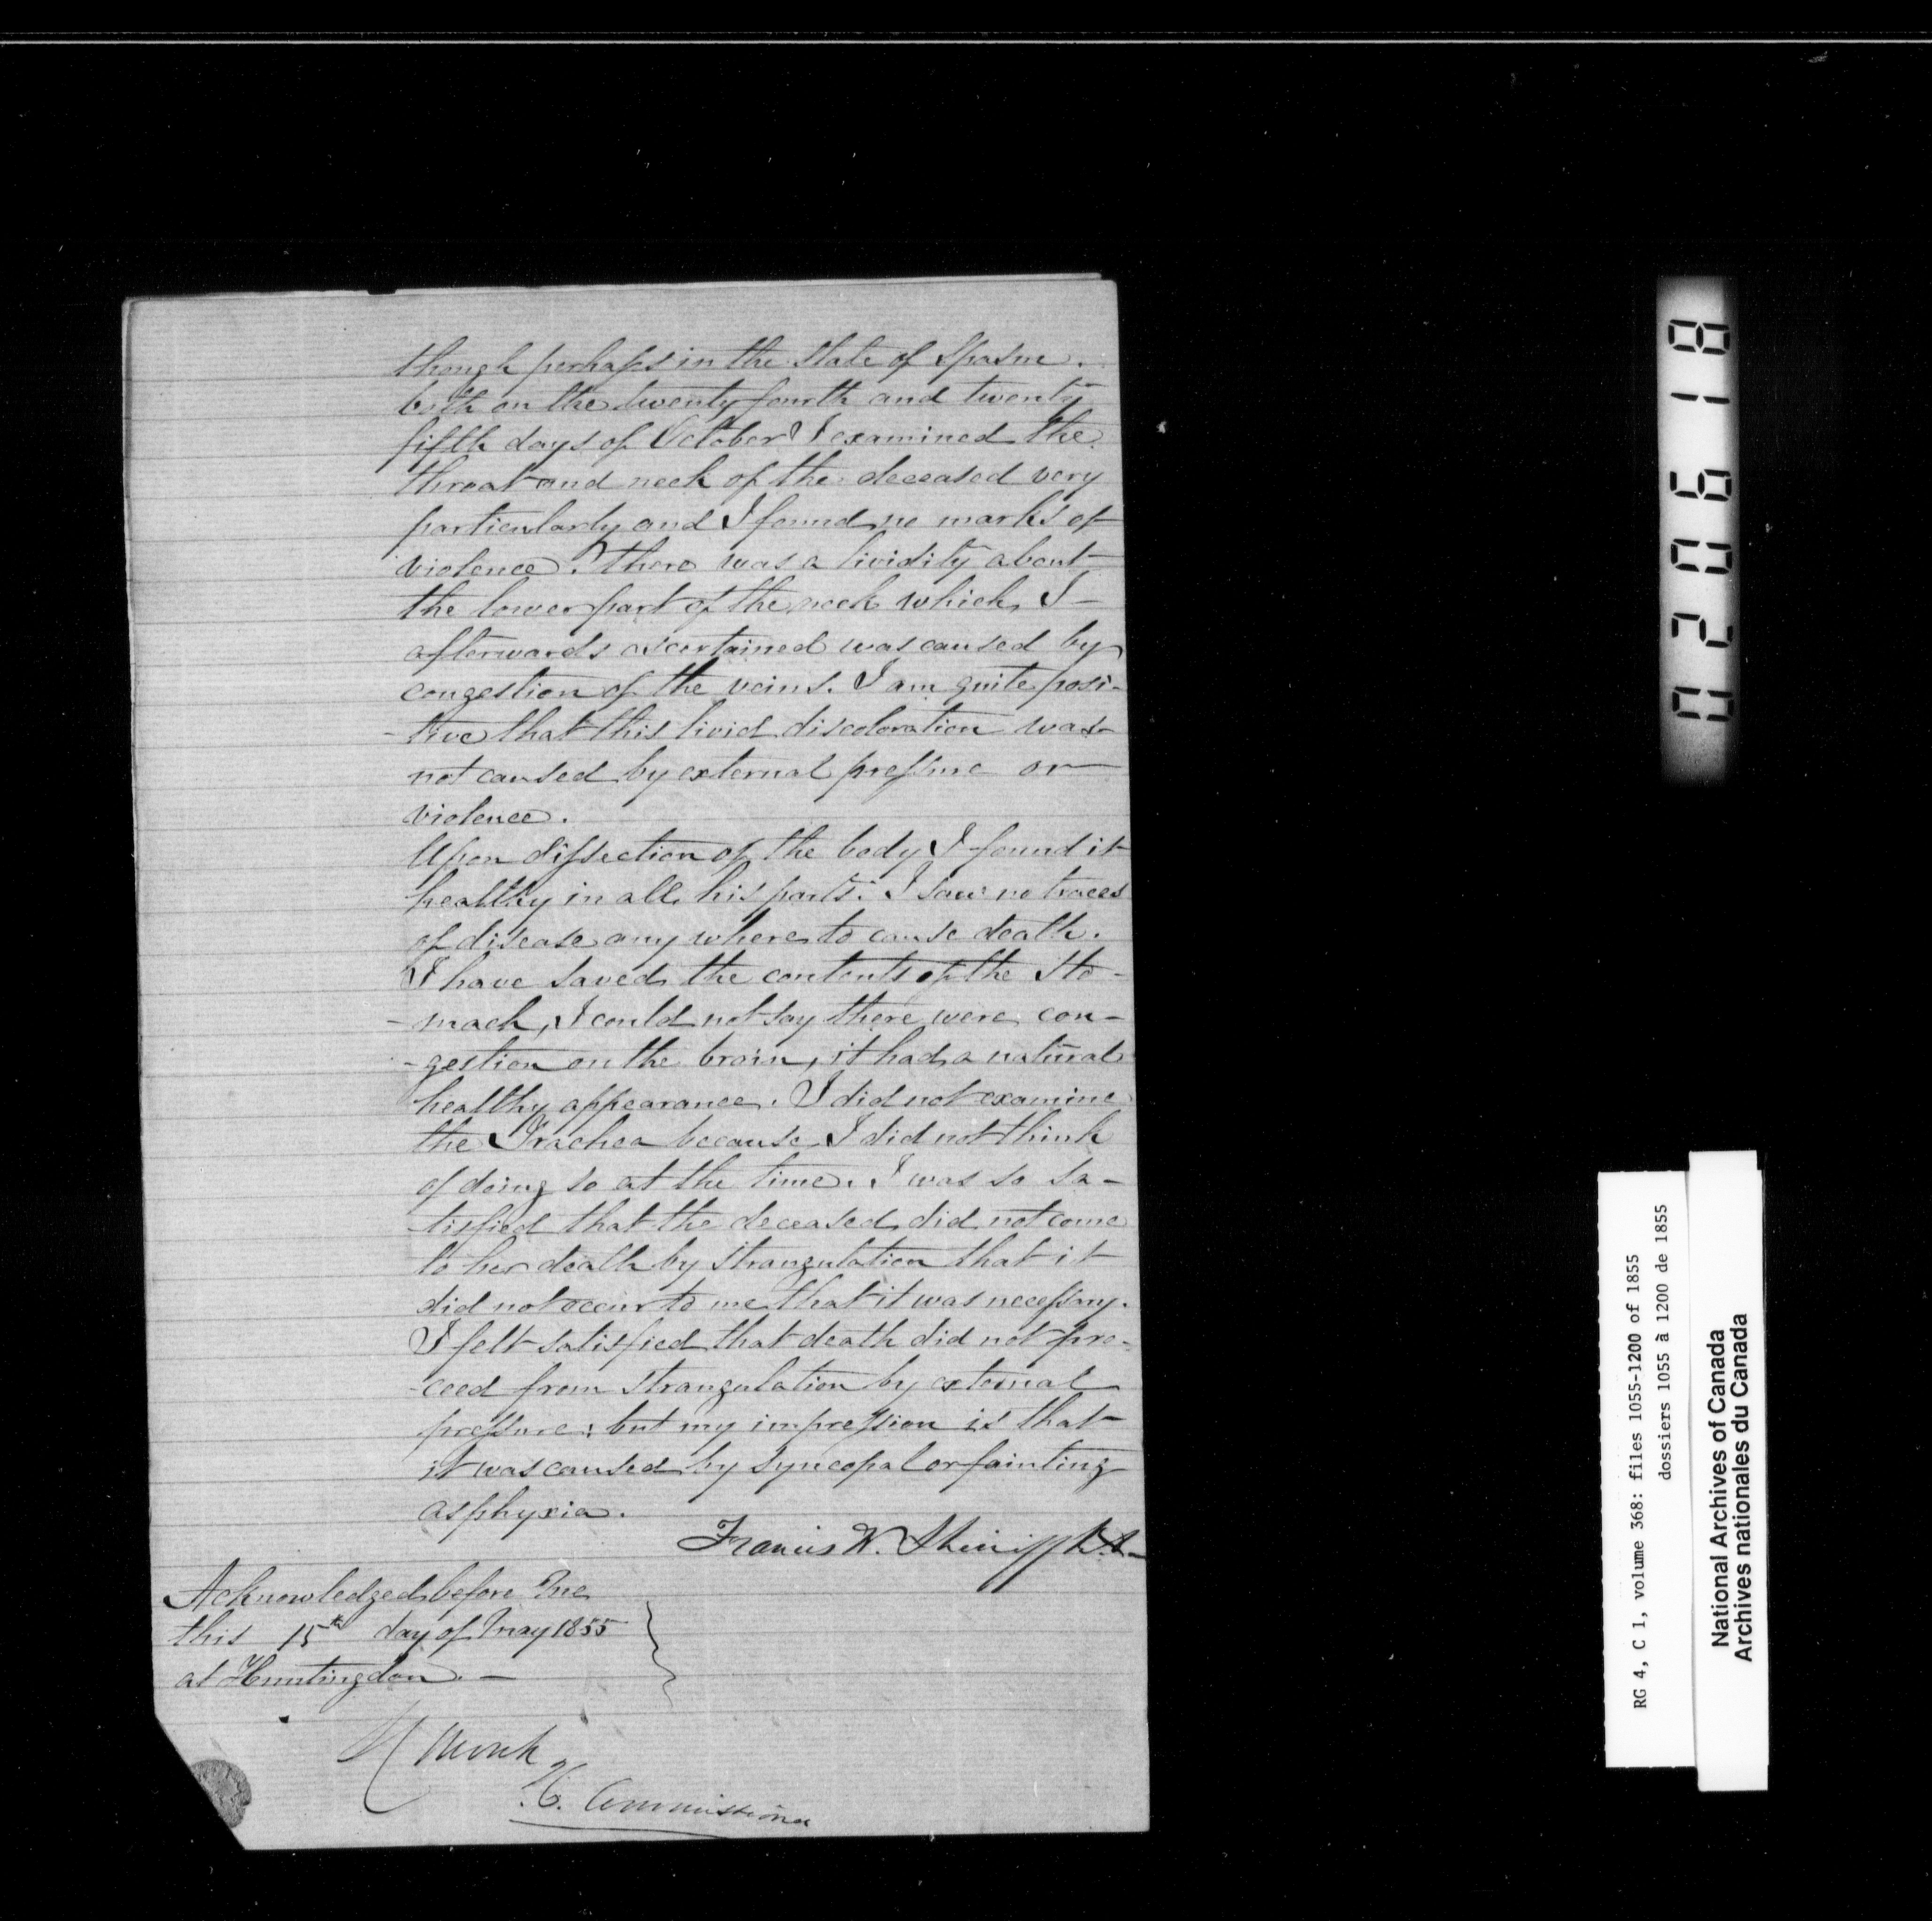 though perhaps in the state of Spasm.
both on the twenty fourth and twenty
fifth days of October I examined the
throat and neck of the deceased very
particularly and I found no marks of
violence. There was a lividity about
the lower part of the neck which I
afterwards ascertained was caused by
congestion of the veins. I am quite posi-
-tive that this livid discoloration was
not caused by external pressure or
violence.
Upon dissection of the body I found it
healthy in all his parts. I saw no traces
of disease any where to cause death.
I have saved the contents of the Sto-
-mach, I could not say there were con-
-gestion on the brain, it had a natural
healthy appearance. I did not examine
the Trachea because I did not think
of doing so at the time. I was so sa-
-tisfied that the deceased did not come
to her death by Strangulation that it
did not occur to me that it was necessary.
I felt satisfied that death did not pro-
-ceed from Strangulation by external
pressure; but my impression is that
it was caused by Syncopal or fainting
asphyxia.
Francis W.
Acknowledged before me
this 15th day of May 1855
at Huntingdon. -
Monk
Commissioner
020618
RG 4, C 1, volume 368: files 1055-1200 of 1855
dossiers 1055 à 1200 de 1855
National Archives of Canada
Archives nationales du Canada